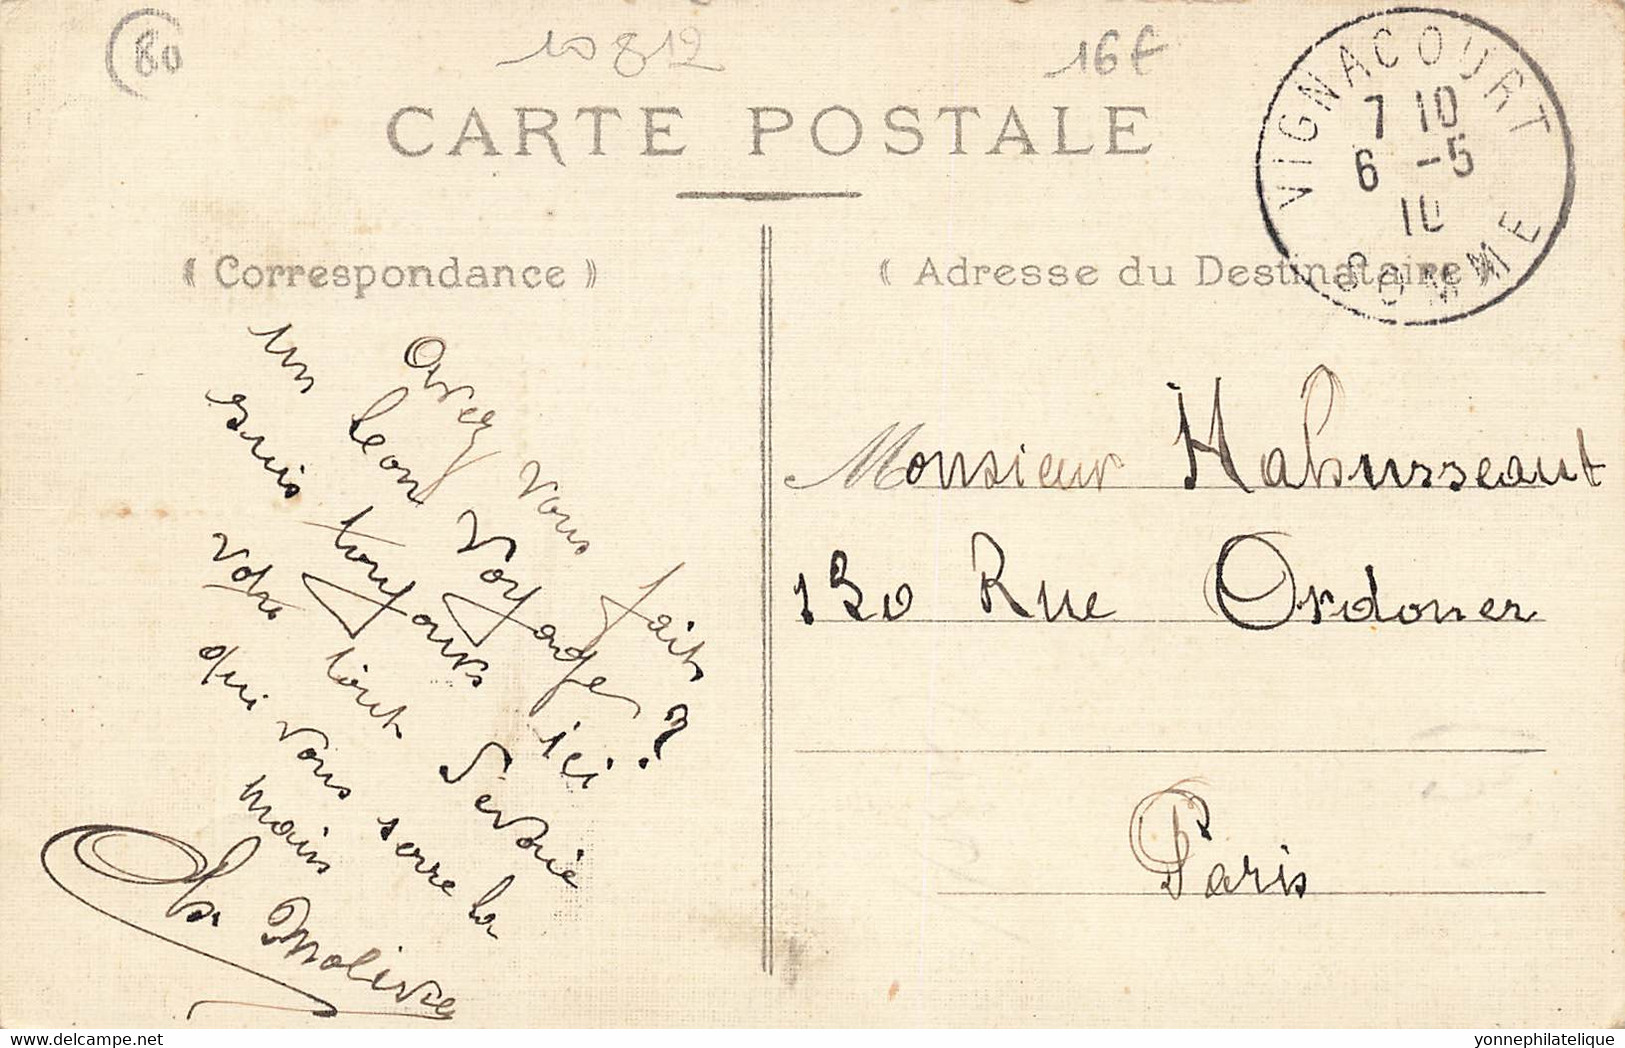 80
10812
16€
CARTE POSTALE
VIGNACOURT
7 10
6 -5
10
SOMME
(Correspondance)
(Adresse du Destinataire)
Avez vous fait
un beau voyage ?
suis toujours ici
votre tout Dévoué
qui vous serre la
main
Monsieur Habusseaut
130 Rue Ordoner
Paris
yonnephilatelique